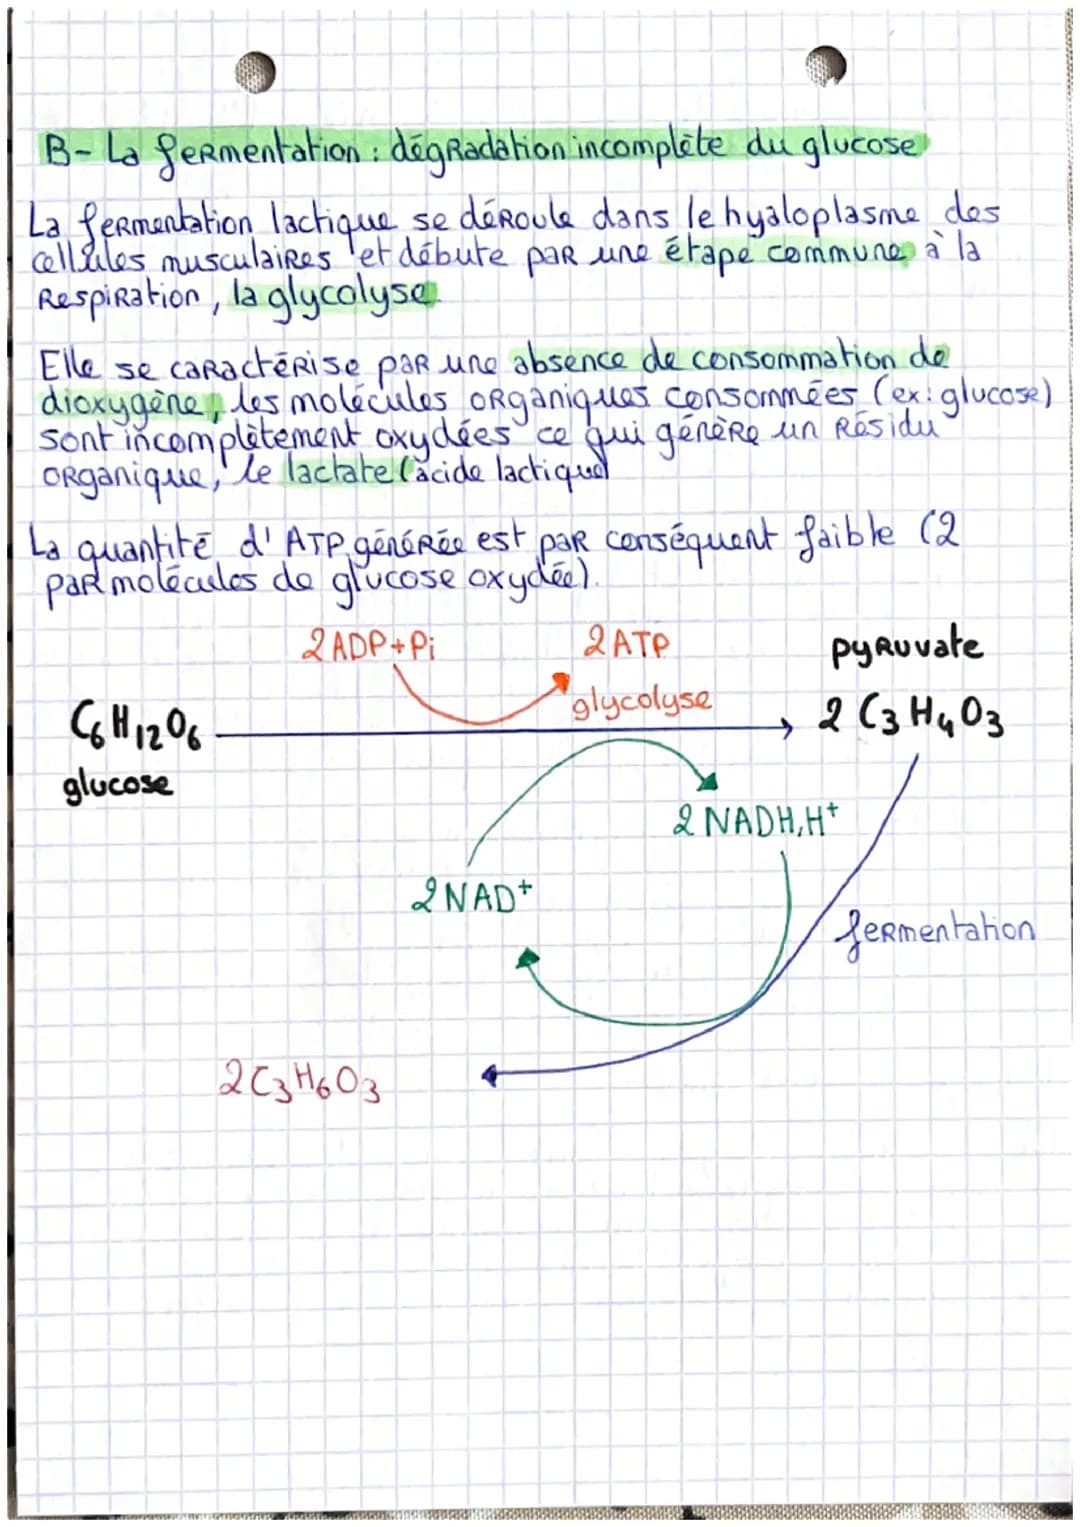 B- La fermentation : dégradation incomplète du glucose
La fermentation lactique se déroule dans le hyaloplasme des
cellules musculaires et débute par une étape commune à la
Respiration, la glycolyse
Elle se caractérise par une absence de consommation de
dioxygène, les molécules organiques consommées (ex: glucose)
sont incomplètement oxydées ce qui génère un Résidu
organique, le lactate (acide lactique)
La quantité d'ATP générée est par conséquent faible (2
par molécules de glucose oxydée).
2 ADP + Pi 2 ATP pyruvate
glycolyse
C6H12O6 2 C3H4O3
glucose
2 NADH,H+
2 NAD+
fermentation
2 C3H6O3